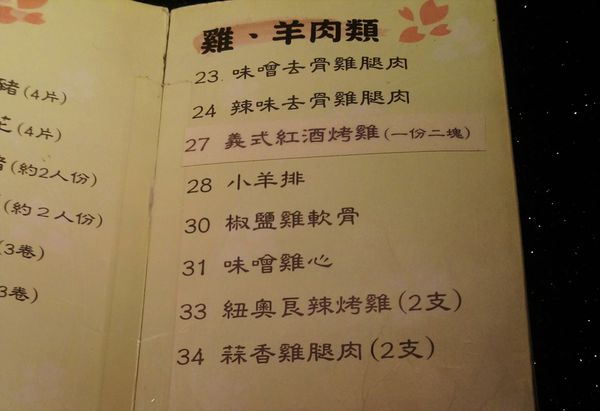 豬(4片)
(4片)
(約2人份)
(約2人份)
(3卷)
3卷)
雞、羊肉類
23 味噌去骨雞腿肉
24 辣味去骨雞腿肉
27 義式紅酒烤雞(一份二塊)
28 小羊排
30 椒鹽雞軟骨
31 味噌雞心
33 紐奧良辣烤雞(2支)
34 蒜香雞腿肉(2支)